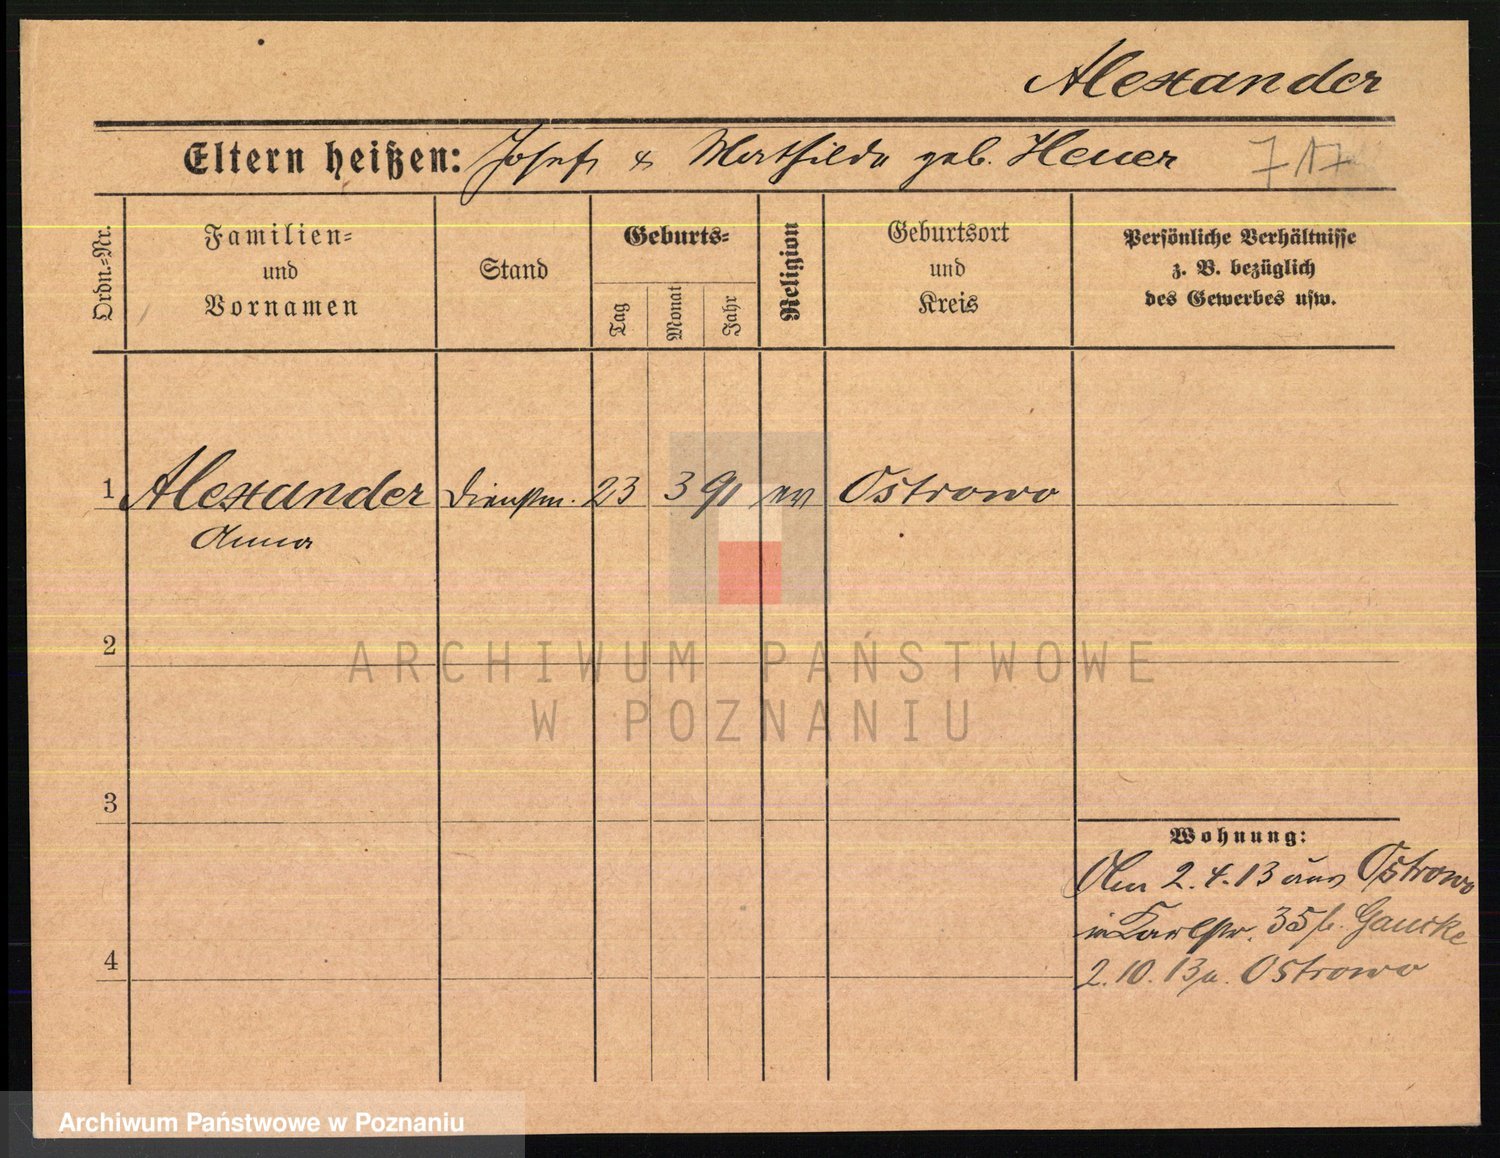 Alexander
Eltern heißen: Josef & Mathilde geb. Heuer 717
Ordn.-Nr.
Familien-
und
Vornamen
Stand
Geburts-
Tag
Monat
Jahr
Religion
Geburtsort
und
Kreis
Persönliche Verhältnisse
z. B. bezüglich
des Gewerbes usw.
1 Alexander Dienstm. 23 3 91 ev Ostrowo
Anna
2
ARCHIWUM PAŃSTWOWE
W POZNANIU
3
Wohnung:
Am 2.4.13 aus Ostrowo
in Karlstr. 35 b. Gaucke
4
2.10.13 n. Ostrowo
Archiwum Państwowe w Poznaniu